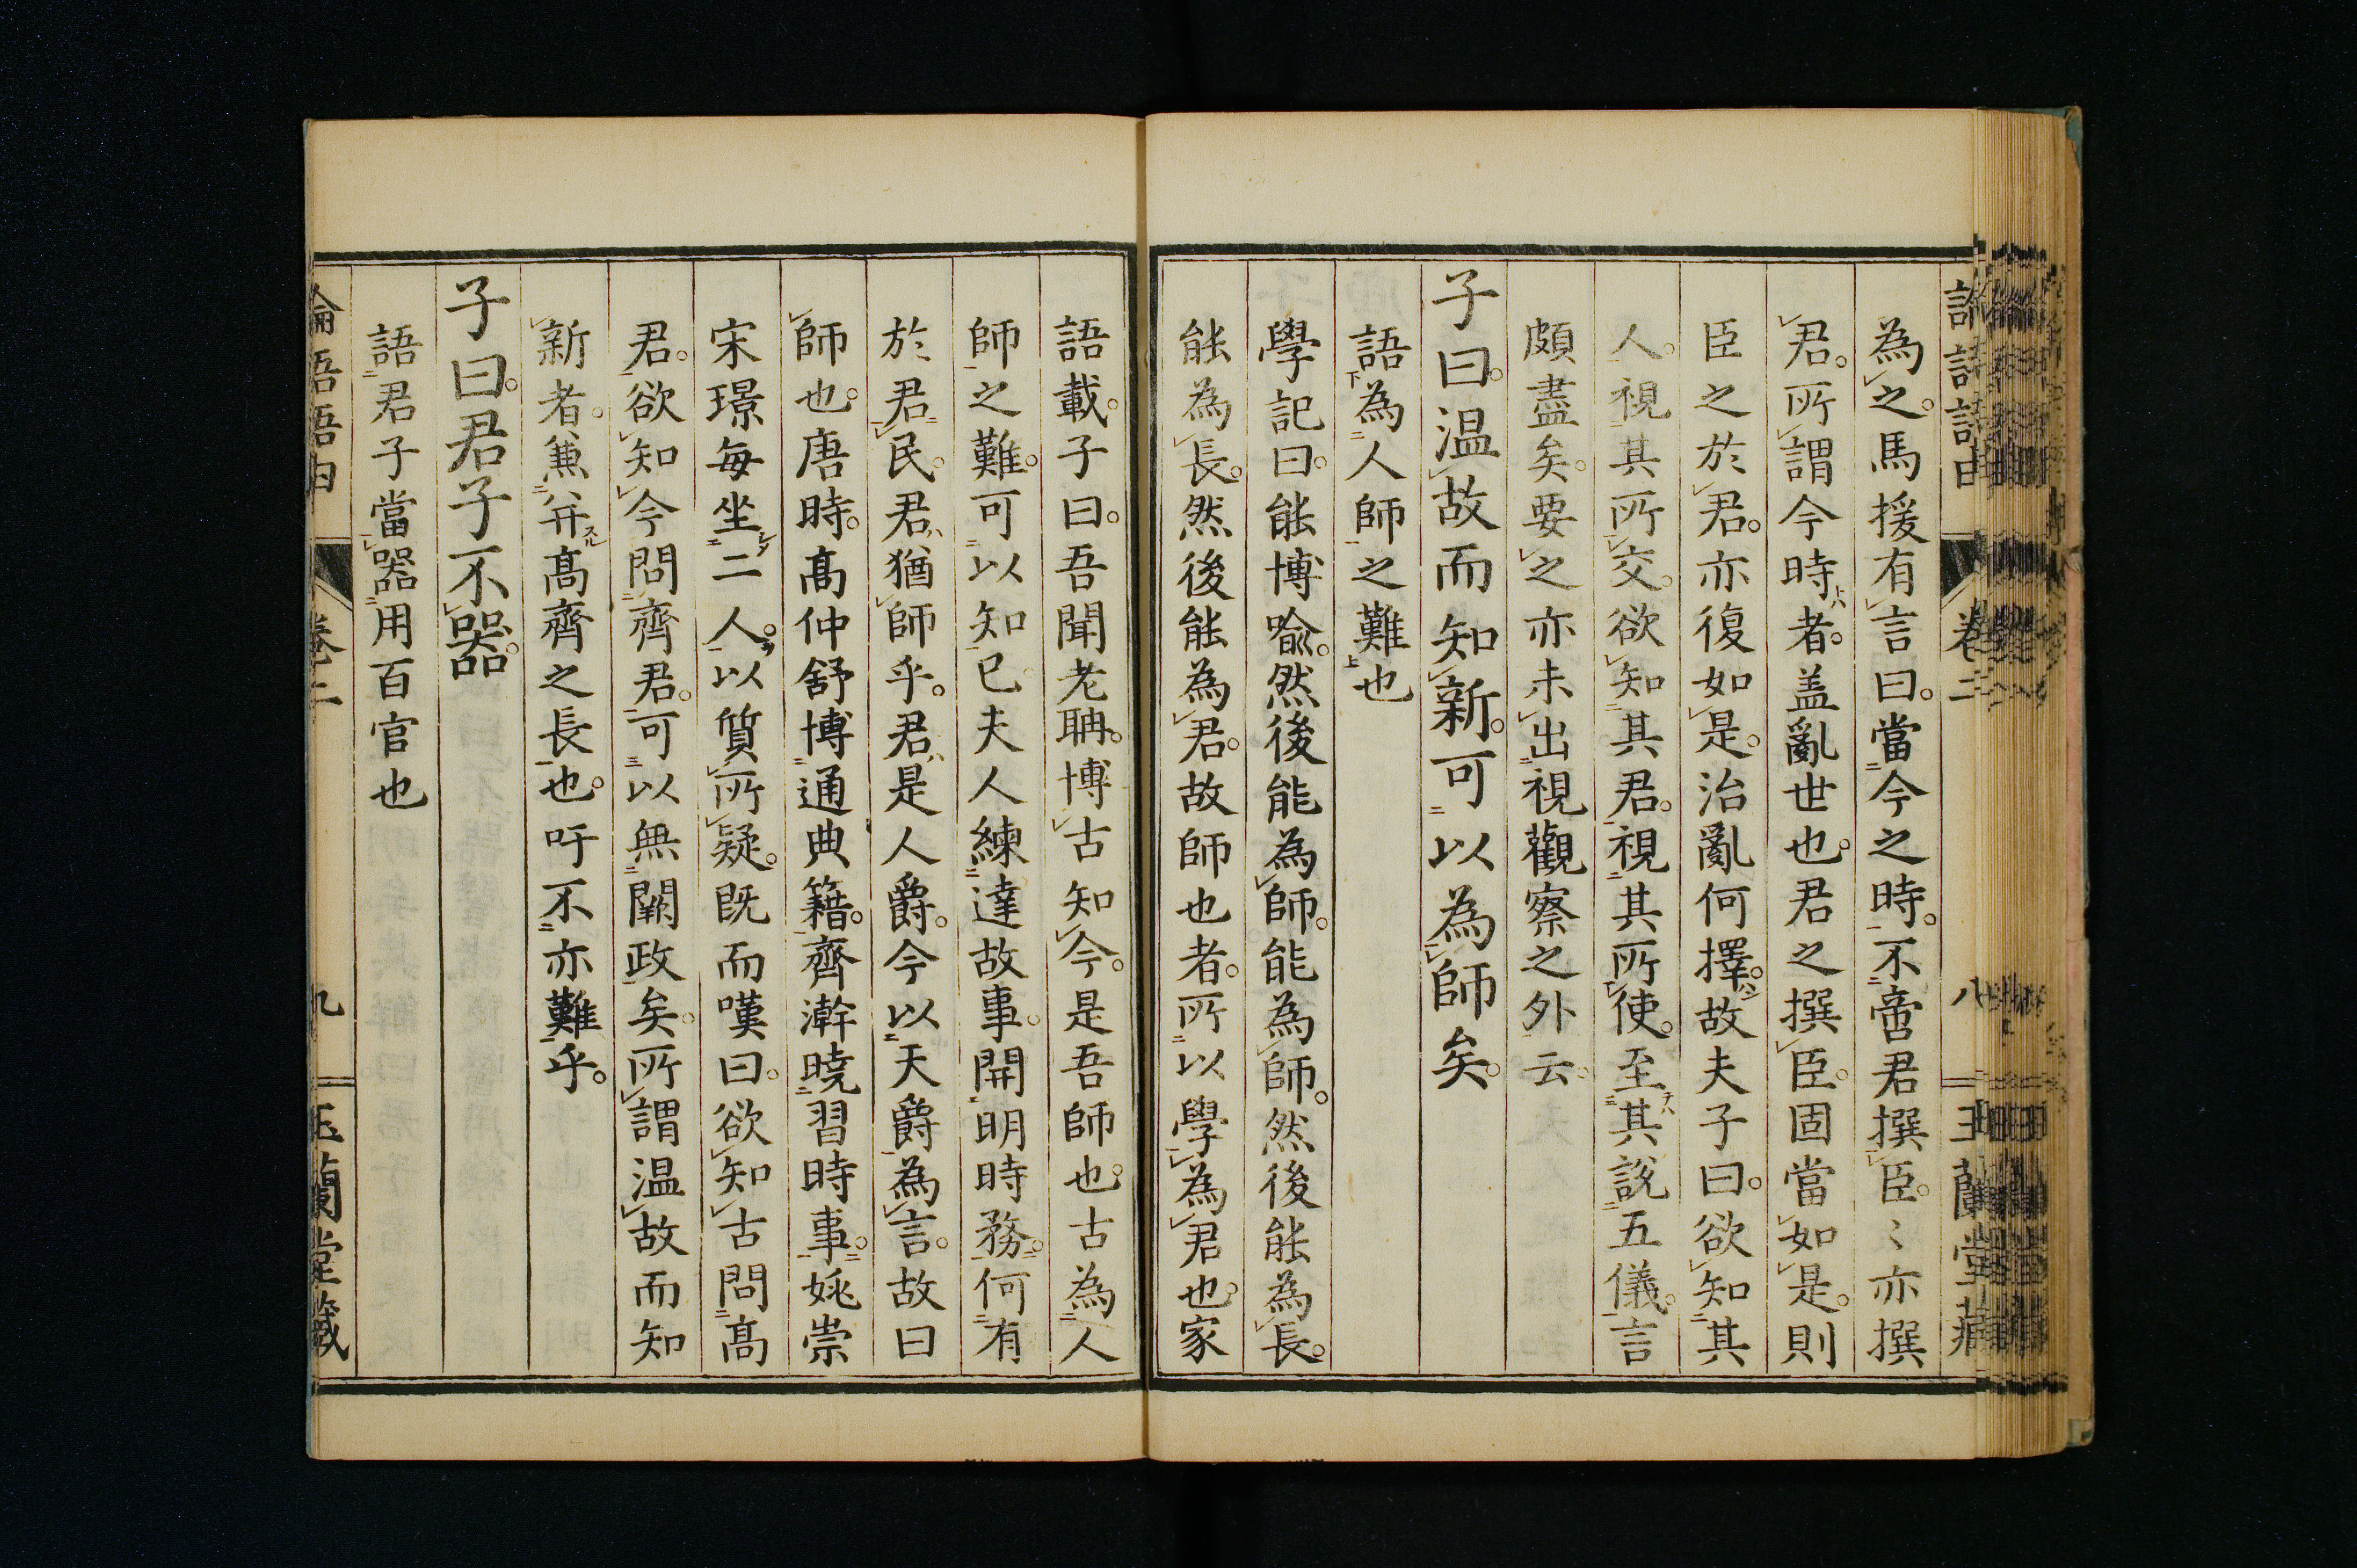 為之。馬援有言曰。當今之時。不啻君撰臣。〻亦撰
君。所謂今時者。盖亂世也。君之撰臣。固當如是。則
臣之於君。亦復如是。治亂何擇。故夫子曰。欲知其
人。視其所交。欲知其君。視其所使。至其說五儀。言
頗盡矣。要之亦未出視觀察之外云。
子曰。温故而知新。可以為師矣。
語為人師之難也
學記曰。能博喩。然後能為師。能為師。然後能為長。
能為長。然後能為君。故師也者。所以學為君也。家
語載。子曰。吾聞老聃。博古知今。是吾師也。古為人
師之難。可以知已。夫人練達故事。開明時務。何有
於君民。君猶師乎。君是人爵。今以天爵為言。故曰
師也。唐時。高仲舒博通典籍。齊澣曉習時事。姚崇
宋璟每坐二人。以質所疑。既而嘆曰。欲知古問高
君。欲知今問齊君。可以無闕政矣。所謂温故而知
新者。兼并高齊之長也。吁不亦難乎。
子曰。君子不器。
語君子當器用百官也
論語語由 卷二 九 玉蘭堂藏